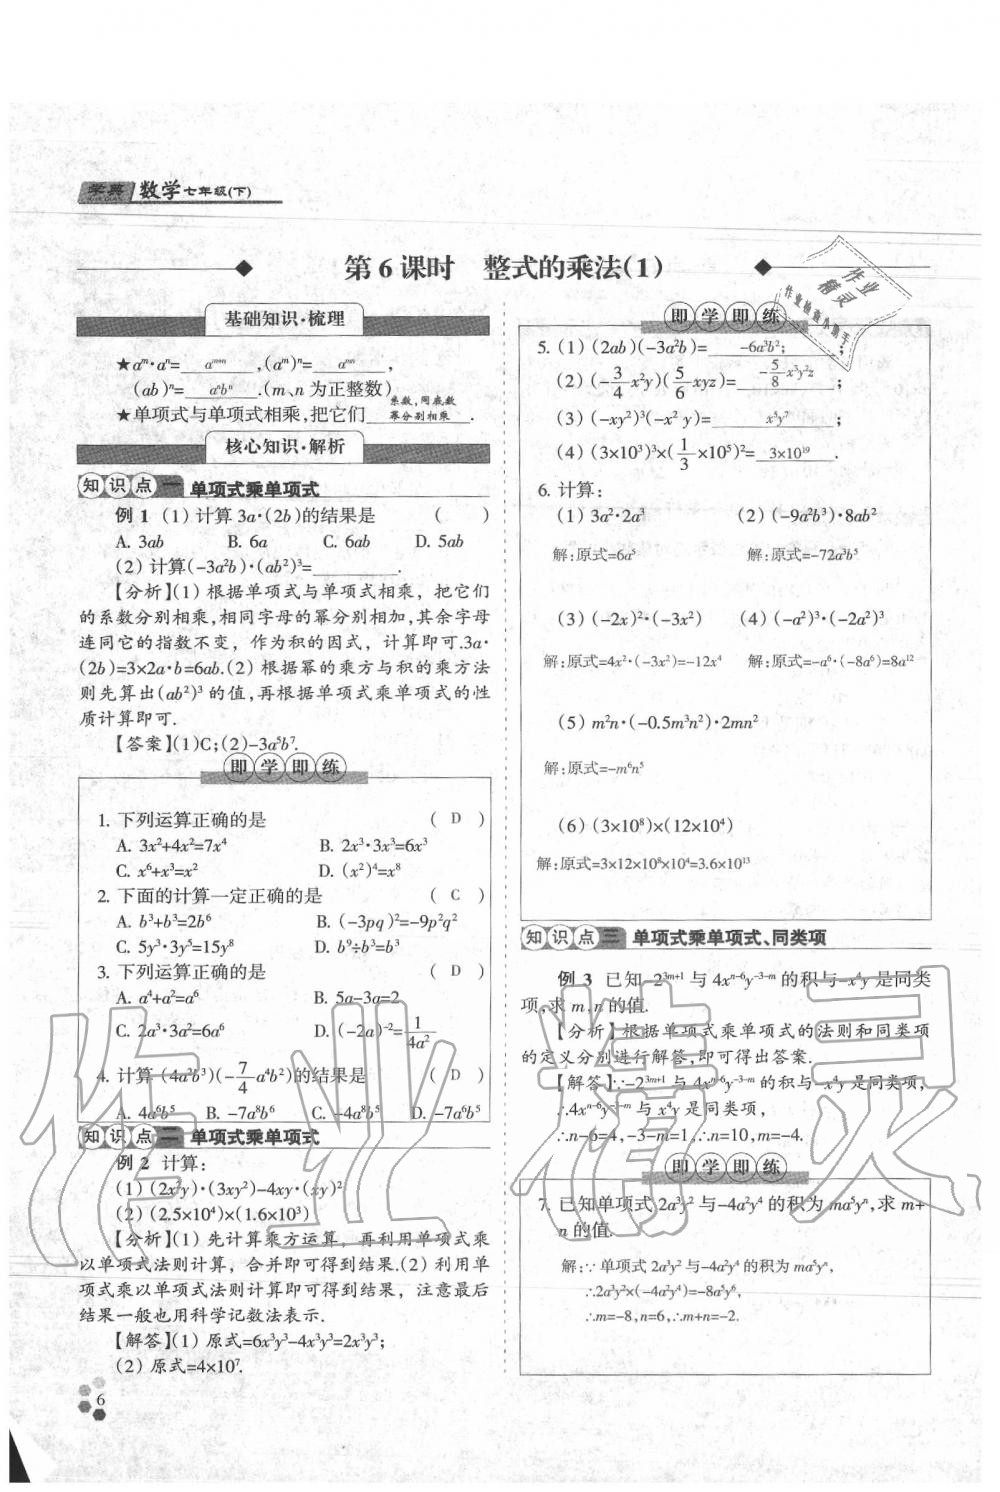 学典 数学七年级(下)
第6课时 整式的乘法(1)
基础知识·梳理
★aᵐ·aⁿ= aᵐ⁺ⁿ ,(aᵐ)ⁿ= aᵐⁿ ,
(ab)ⁿ= aⁿbⁿ .(m、n为正整数)
★单项式与单项式相乘,把它们 系数,同底数幂分别相乘 .
核心知识·解析
知识点一 单项式乘单项式
例1 (1)计算3a·(2b)的结果是 ( )
A. 3ab B. 6a C. 6ab D. 5ab
(2)计算(-3a²b)·(ab²)³=________.
【分析】(1)根据单项式与单项式相乘，把它们
的系数分别相乘,相同字母的幂分别相加,其余字母
连同它的指数不变，作为积的因式，计算即可.3a·
(2b)=3×2a·b=6ab.(2)根据幂的乘方与积的乘方法
则先算出(ab²)³的值,再根据单项式乘单项式的性
质计算即可.
【答案】(1)C;(2)-3a⁵b⁷.
即学即练
1. 下列运算正确的是 ( D )
A. 3x²+4x²=7x⁴ B. 2x³·3x³=6x³
C. x⁶+x³=x² D. (x²)⁴=x⁸
2. 下面的计算一定正确的是 ( C )
A. b³+b³=2b⁶ B. (-3pq)²=-9p²q²
C. 5y³·3y⁵=15y⁸ D. b⁹÷b³=b³
3. 下列运算正确的是 ( D )
A. a⁴+a²=a⁶ B. 5a-3a=2
C. 2a³·3a²=6a⁶ D. (-2a)⁻²=1/4a²
4. 计算(4a²b³)(-7/4a⁴b²)的结果是 ( D )
A. 4a⁶b⁵ B. -7a⁸b⁶ C. -4a⁸b⁵ D. -7a⁶b⁵
知识点二 单项式乘单项式
例2 计算：
(1)(2x²y)·(3xy²)-4xy·(xy)²
(2)(2.5×10⁴)×(1.6×10³)
【分析】(1)先计算乘方运算，再利用单项式乘
以单项式法则计算，合并即可得到结果.(2)利用单
项式乘以单项式法则计算即可得到结果，注意最后
结果一般也用科学记数法表示.
【解答】(1)原式=6x³y³-4x³y³=2x³y³;
(2)原式=4×10⁷.
6
即学即练
5. (1)(2ab)(-3a²b)= -6a³b²;
(2)(-3/4x²y)(5/6xyz)= -5/8x³y²z ;
(3)(-xy²)³(-x²y)= x⁵y⁷ ;
(4)(3×10³)³×(1/3×10⁵)²= 3×10¹⁹ .
6. 计算：
(1)3a²·2a³ (2)(-9a²b³)·8ab²
解:原式=6a⁵ 解:原式=-72a³b⁵
(3)(-2x)²·(-3x²) (4)(-a²)³·(-2a²)³
解:原式=4x²·(-3x²)=-12x⁴ 解:原式=-a⁶·(-8a⁶)=8a¹²
(5)m²n·(-0.5m³n²)·2mn²
解:原式=-m⁶n⁵
(6)(3×10⁸)×(12×10⁴)
解:原式=3×12×10⁸×10⁴=3.6×10¹³
知识点三 单项式乘单项式、同类项
例3 已知-2³ᵐ⁺¹与4xⁿ⁻⁶y⁻³⁻ᵐ的积与-x⁴y是同类
项,求m、n的值.
【分析】根据单项式乘单项式的法则和同类项
的定义分别进行解答,即可得出答案.
【解答】∵-2³ᵐ⁺¹与4xⁿ⁻⁶y⁻³⁻ᵐ的积与-x⁴y是同类项,
∴4xⁿ⁻⁶y⁻³⁻ᵐ与x⁴y是同类项,
∴n-6=4,-3-m=1,∴n=10,m=-4.
即学即练
7. 已知单项式2a³y²与-4a²y⁴的积为ma⁵yⁿ,求m+
n的值.
解:∵单项式2a³y²与-4a²y⁴的积为ma⁵yⁿ,
∴2a³y²×(-4a²y⁴)=-8a⁵y⁶,
∴m=-8,n=6,∴m+n=-2.
作业精灵
作业检查小助手
作业精灵